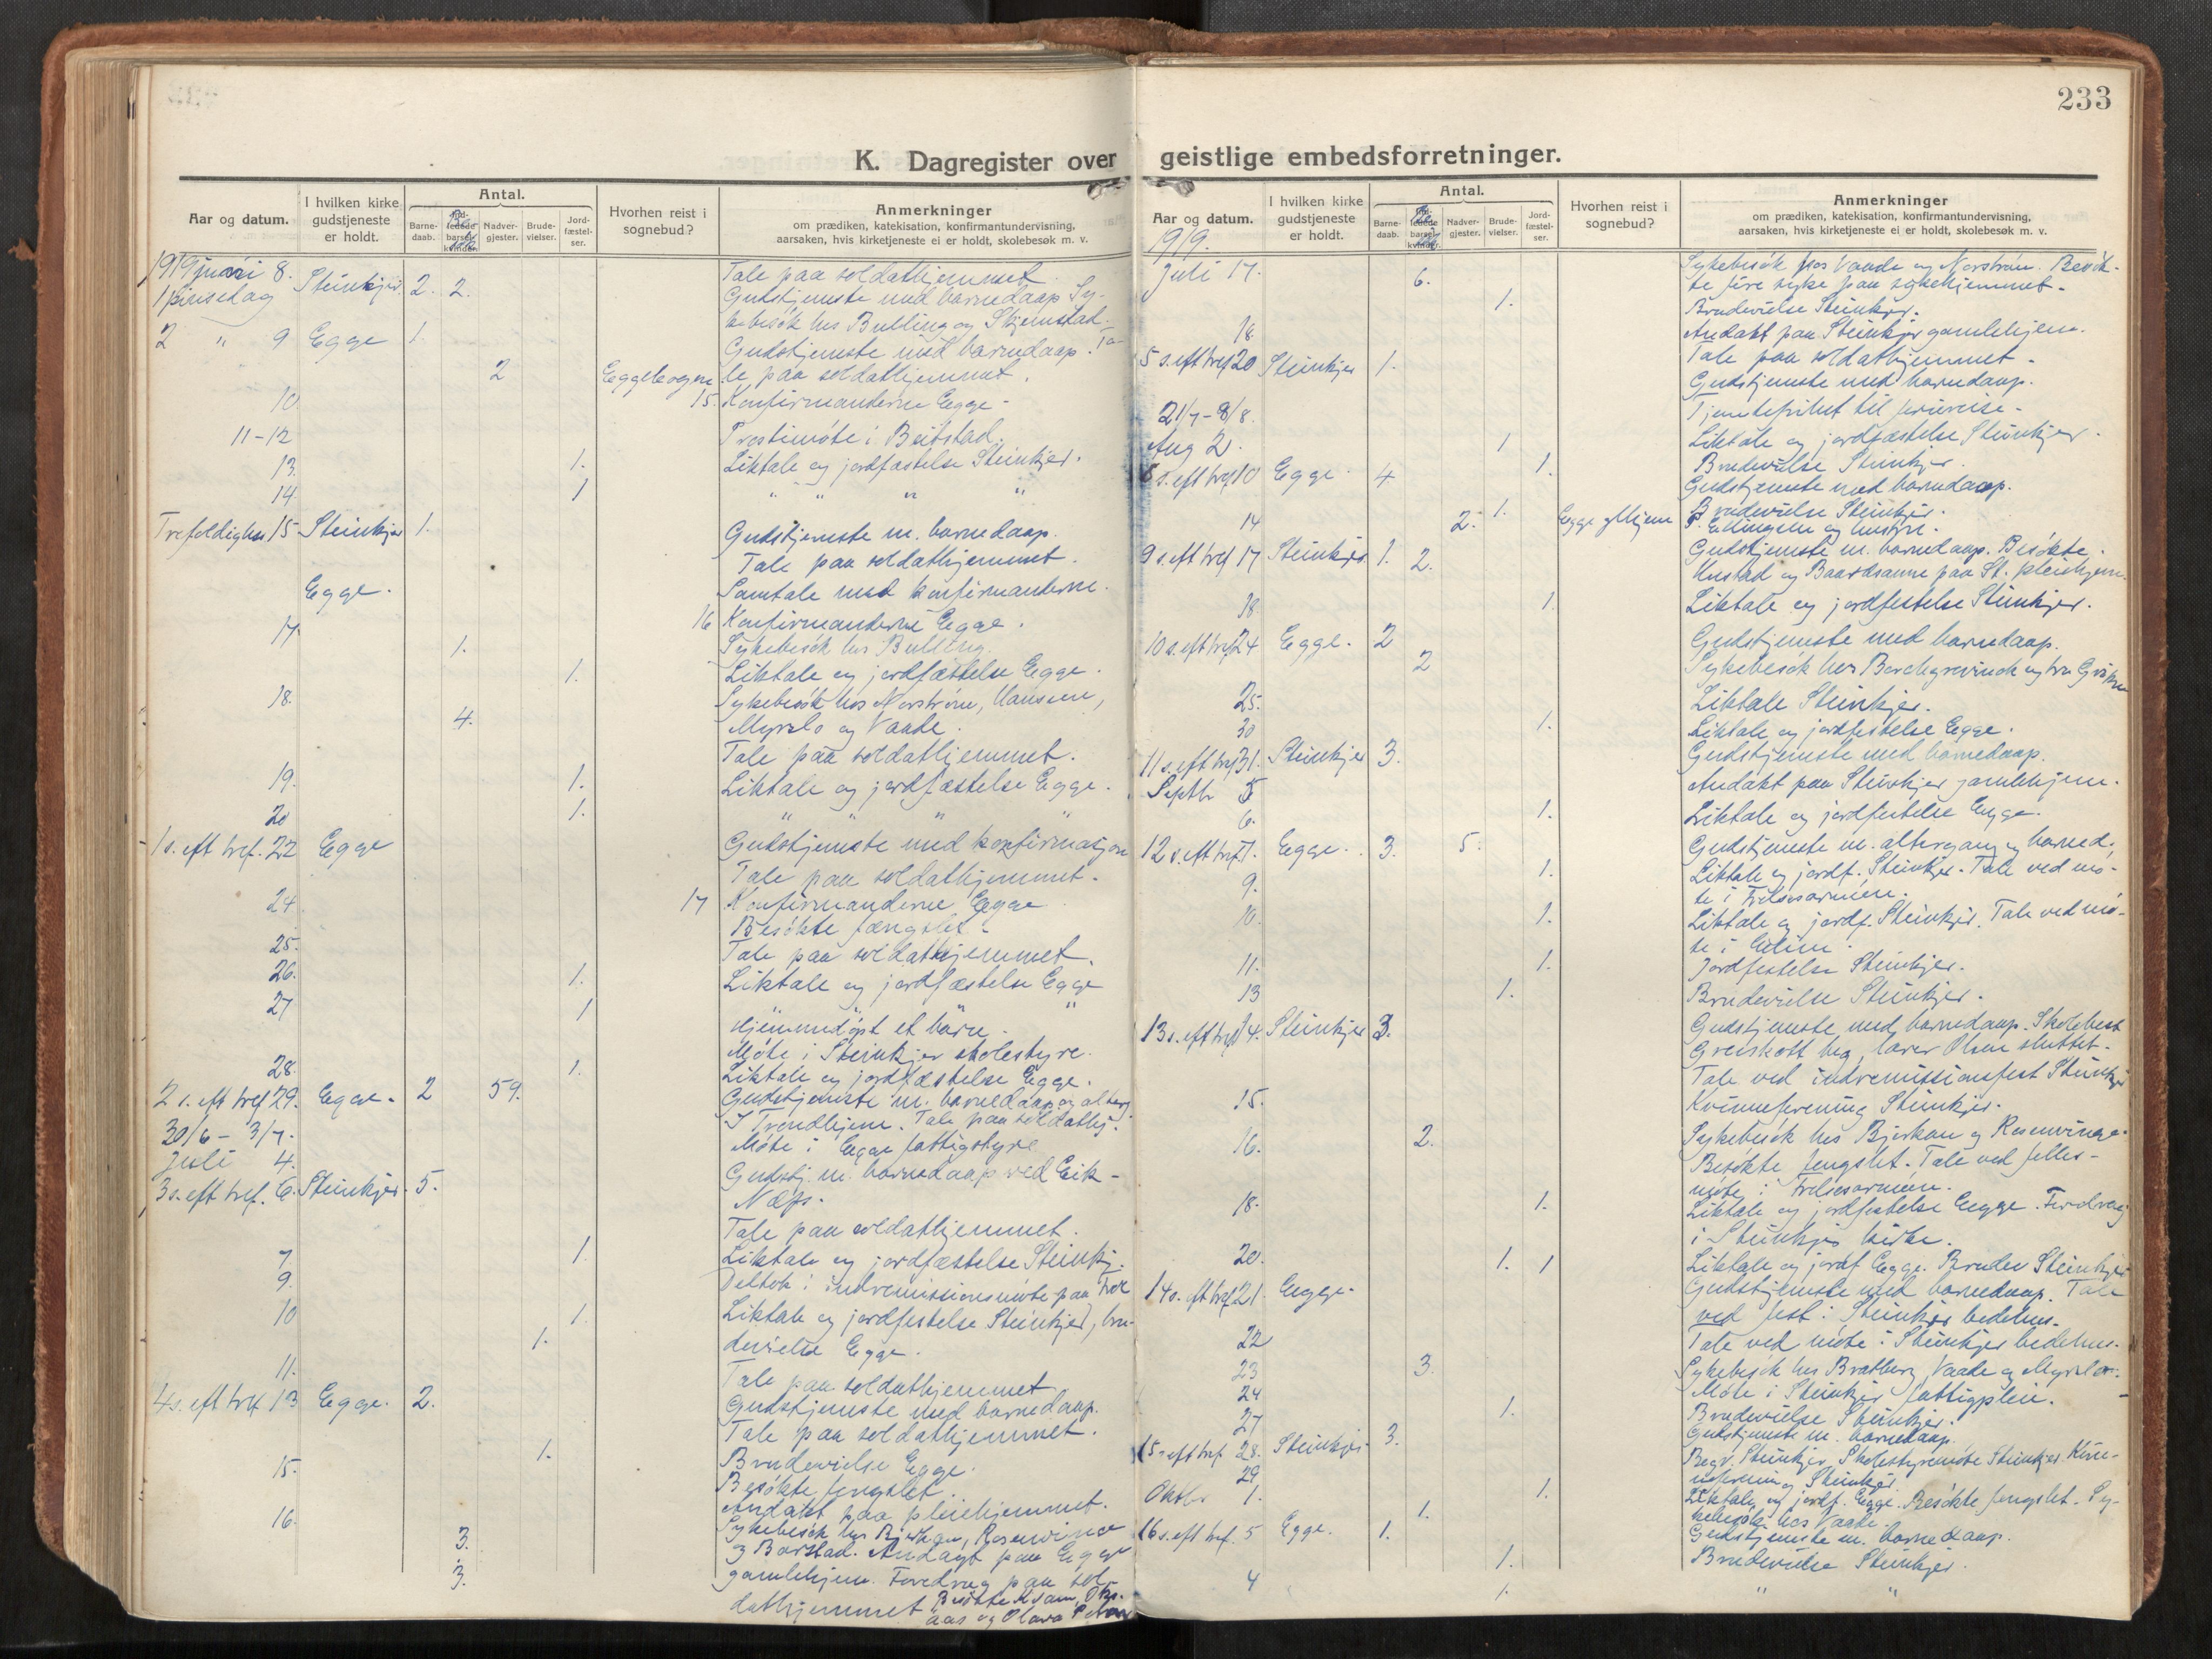 233
K. Dagregister over geistlige embedsforretninger.
Aar og datum.
I hvilken kirke gudstjeneste er holdt.
Antal.
Barne-daab.
Nadver-gjester.
Brude-vielser.
Jord-fæstel-ser.
Hvorhen reist i sognebud?
Anmerkninger
om prædiken, katekisation, konfirmantundervisning,
aarsaken, hvis kirketjeneste ei er holdt, skolebesøk m. v.
1919 8. Tale paa soldathjemmet.
1 pinsedag Steinkjer 2. 2. Gudstjeneste med barnedaap Sy-
kebesök hos Bulling og Skjemstad.
2 " 9 Egge 1. Gudstjeneste med barnedaap. Ta-
2 le paa soldathjemmet.
10 15. Konfirmanderne Egge.
11-12 Prostimöte i Beitstad.
13. 1. Liktale og jordfæstelse Steinkjer.
14. 1 " " " "
15 Steinkjer 1. Gudstjeneste m. barnedaap.
Tale paa soldathjemmet.
Egge. Samtale med konfirmanderne.
16 Konfirmanderne Egge.
17. 1. Sykebesök hos Bulling.
1. Liktale og jordfæstelse Egge.
18. Sykebesök hos Norström, Hansen,
4. Myrslo og Vaade.
Tale paa soldathjemmet.
19. 1. Liktale og jordfæstelse Egge.
20 1. " " " "
1 s. eft tref. 22 Egge Gudstjeneste med konfirmasjon
Tale paa soldathjemmet.
24. 17 Konfirmanderne Egge
Besökte fængslet.
25. Tale paa soldathjemmet.
26. 1. Liktale og jordfæstelse Egge
27 1 " " "
Hjemmedöpt et barn.
Möte i Steinkjer skolestyre.
28. 1. Liktale og jordfæstelse Egge.
2 s. eft tref 29. Egge. 2 59. Gudstjeneste m. barnedaap og alterg.
30/6 - 3/7. I Trondhjem. Tale paa soldathj.
Juli 4. Möte i Egge fattigstyre
3 s. eft tref. 6. Steinkjer. 5. Gudstj. m. barnedaap ved Eik-
Næss.
Tale paa soldathjemmet.
7 1. Liktale og jordfæstelse Steinkj.
9. Deltok i indremissionsmöte paa
10 1. Liktale og jordfestelse Steinkjer, bru-
1. devielse Egge.
11. Tale paa soldathjemmet
4 s. eft tref 13 Egge. 2. Gudstjeneste med barnedaap.
Tale paa soldathjemmet.
1. Brudevielse Egge.
15. Besökte fengslet.
Andakt paa pleiehjemmet.
16. Sykebesök hos Bjerkan, Rosenvinge
3. og Barstad. Andagt paa Egge
3. gamlehjem. Foredrag paa sol-
dathjemmet Besökte
aas og Olava
Aar og datum.
I hvilken kirke gudstjeneste er holdt.
Antal.
Barne-daab.
Nadver-gjester.
Brude-vielser.
Jord-fæstel-ser.
Hvorhen reist i sognebud?
Anmerkninger
om prædiken, katekisation, konfirmantundervisning,
aarsaken, hvis kirketjeneste ei er holdt, skolebesøk m. v.
1919.
Juli 17. Sykebesök hos Vaade og Norström. Besök-
6. te fire syke paa sykehjemmet.
1. Brudevielse Steinkjer.
18. Andakt paa Steinkjer gamlehjem.
Tale paa soldathjemmet.
5 s. eft tref 20 Steinkjer 1. Gudstjeneste med barnedaap.
21/7 - 8/8. Tjenestefrihet til ferie
Aug 2. Liktale og jordfæstelse Steinkjer.
1 Brudevielse Steinkjer.
8 s. eft tref 10 Egge. 4 1. Gudstjeneste med barnedaap.
1. Brudevielse Steinkjer.
14 2. Egge glhjem P. Ellingsen og hustru.
9 s. eft tref 17 Steinkjer. 1. 2. Gudstjeneste m. barnedaap. Besökte
og Baardsaune paa St. pleiehjem.
18. 1. Liktale og jordfestelse Steinkjer.
10 s. eft tref 24 Egge. 2 Gudstjeneste med barnedaap.
2 Sykebesök hos Borchgrevinck og fru
25. Liktale Steinkjer.
30 1. Liktale og jordfestelse Egge.
11 s. eft tref 31. Steinkjer 3. Gudstjeneste med barnedaap.
Septbr 5 Andakt paa Steinkjer gamlehjem.
6. 1. Liktale og jordfestelse Egge.
12 s. eft tref 7. Egge. 3. 5. Gudstjeneste m. altergang og barned.
9. 1. Liktale og jordf. Steinkjer. Tale ved mö-
te i Frelsesarmeen.
10. 1. Liktale og jordf. Steinkjer. Tale ved mö-
te i Elim.
11. 1. Jordfestelse Steinkjer.
13 1. Brudevielse Steinkjer.
13 s. eft tref 14. Steinkjer 3. Gudstjeneste med barnedaap.
lærer Olsen sluttet.
Tale ved indremissionsfest Steinkjer
15. Kvinneforening Steinkjer.
16. 2. Sykebesök hos Bjerkan og Rosenvinge.
Besökte fengslet. Tale ved felles-
möte i Frelsesarmeen.
18. 1. Liktale og jordfestelse Egge. Foredrag
i Steinkjer kirke.
20. 1. 1 Liktale og jordf Egge. Brudev Steinkjer
14 s. eft tref 21. Egge. Gudstjeneste med barnedaap. Tale
ved fest i Steinkjer bedehus.
22 Tale ved möte i Steinkjer bedehus.
23 3. Sykebesök hos Bratberg, Vaade og Myrslo.
24 Möte i Steinkjer fattigpleie.
27 1. Brudevielse Steinkjer.
15 s. eft tref 28. Steinkjer 3. Gudstjeneste m. barnedaap.
29 Begr. Steinkjer. Skolestyremöte Steinkjer. Kvin-
neforening Steinkjer.
Oktbr 1. 1. Liktale og jordf. Egge. Besökte fengslet. Sy-
1. kebesök hos Vaade.
16 s. eft tref. 5 Egge. 1. Gudstjeneste m. barnedaap.
1. Brudevielse Steinkjer.
4 1. " "